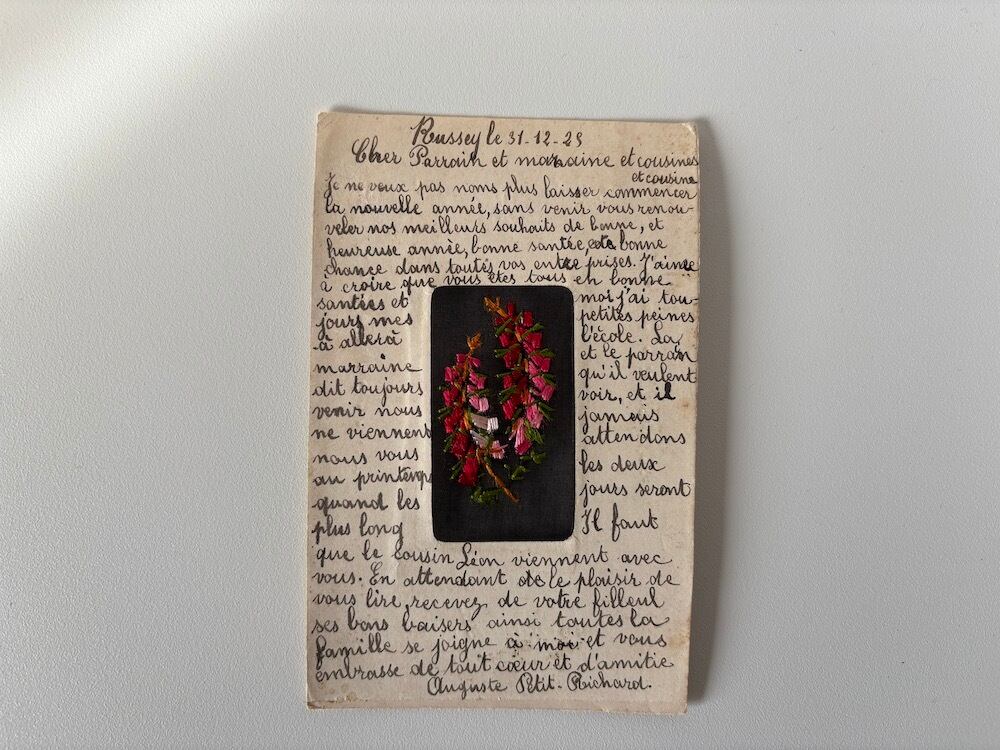 Russey le 31-12-25
Cher Parrain et marraine et cousines
et cousine
Je ne veux pas noms plus laisser commencer
la nouvelle année, sans venir vous renou-
veler nos meilleurs souhaits de bonne, et
heureuse année, bonne santée, bonne
chance dans toutes vos entre prises. J'aime
à croire que vous êtes tous en bonne
santées et moi j'ai tou-
jours mes petites peines
à aller à l'école. La
marraine et le parrain
dit toujours qu'il veulent
venir nous voir, et il
ne viennent jamais
nous vous attendons
au printemps les deux
quand les jours seront
plus long Il faut
que le cousin Léon viennent avec
vous. En attendant le plaisir de
vous lire, recevez de votre filleul
ses bons baisers ainsi toutes la
famille se joigne à moi et vous
embrasse de tout cœur et d'amitie
Auguste Petit-Richard.